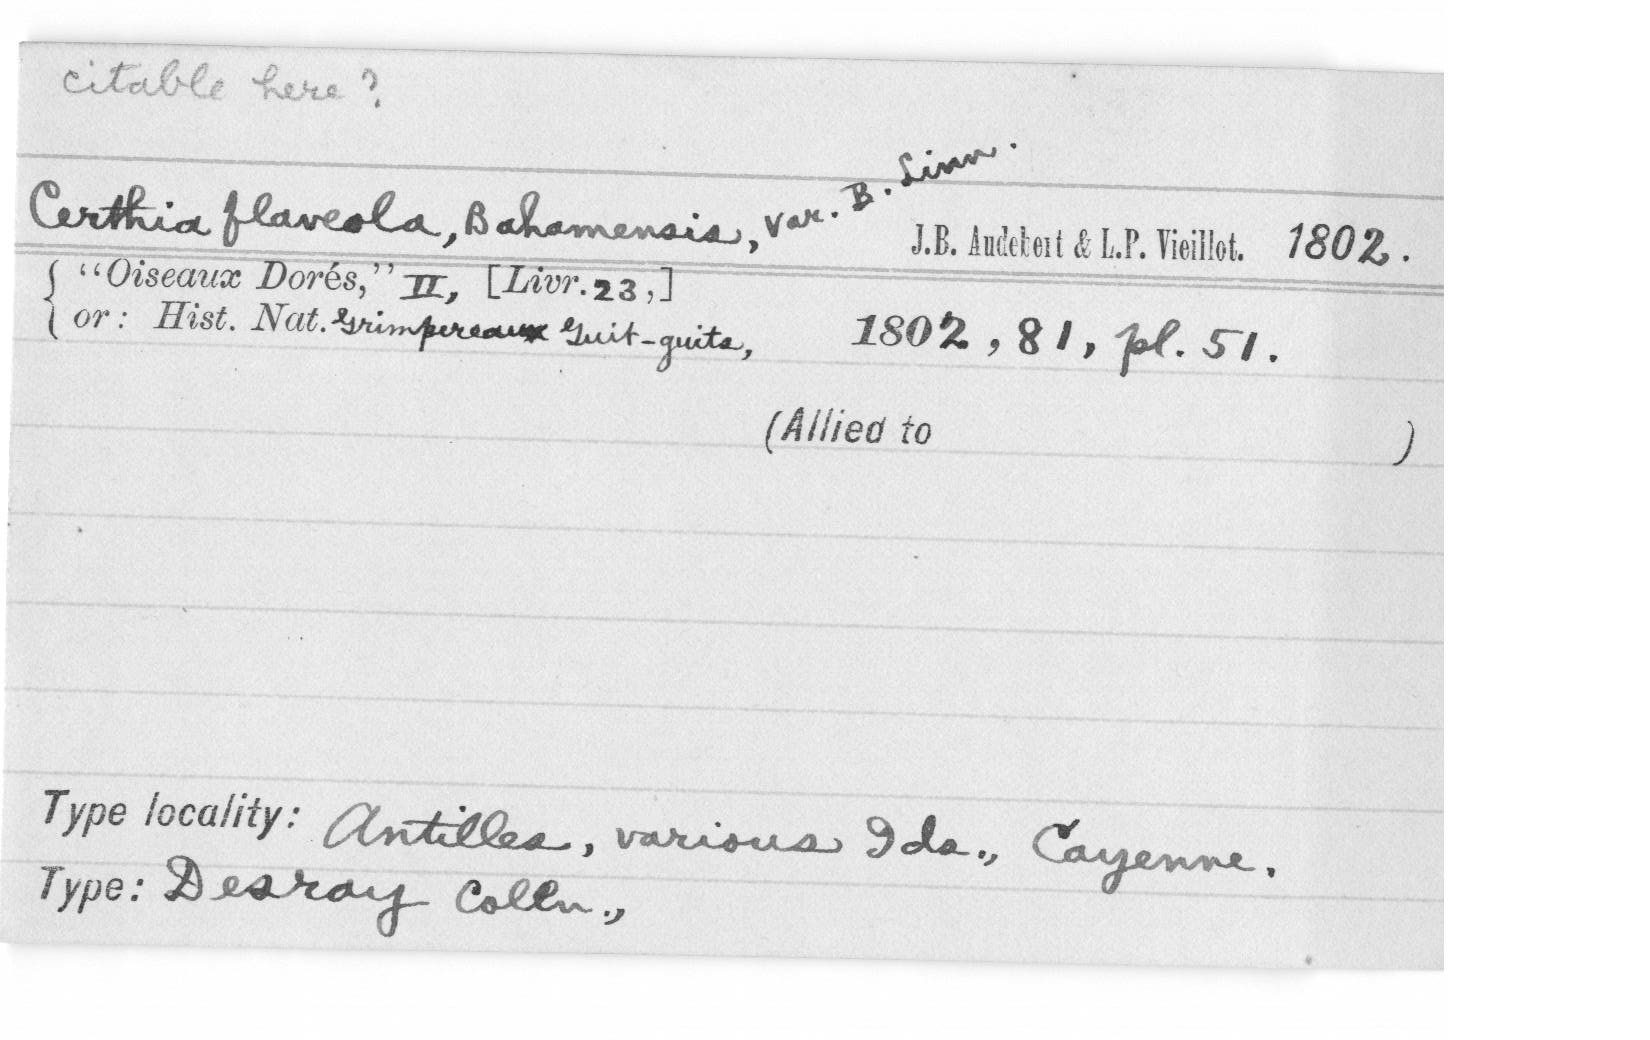 citable here?
Certhia flaveola, Bahamensis, var. B. Linn. J.B. Audebert & L.P. Vieillot. 1802.
"Oiseaux Dorés," II, [Livr. 23,]
or: Hist. Nat. Grimpereaux Guit-guits, 1802, 81, pl. 51.
(Allied to )
Type locality: Antilles, various Ids., Cayenne.
Type: Desray Colln.,